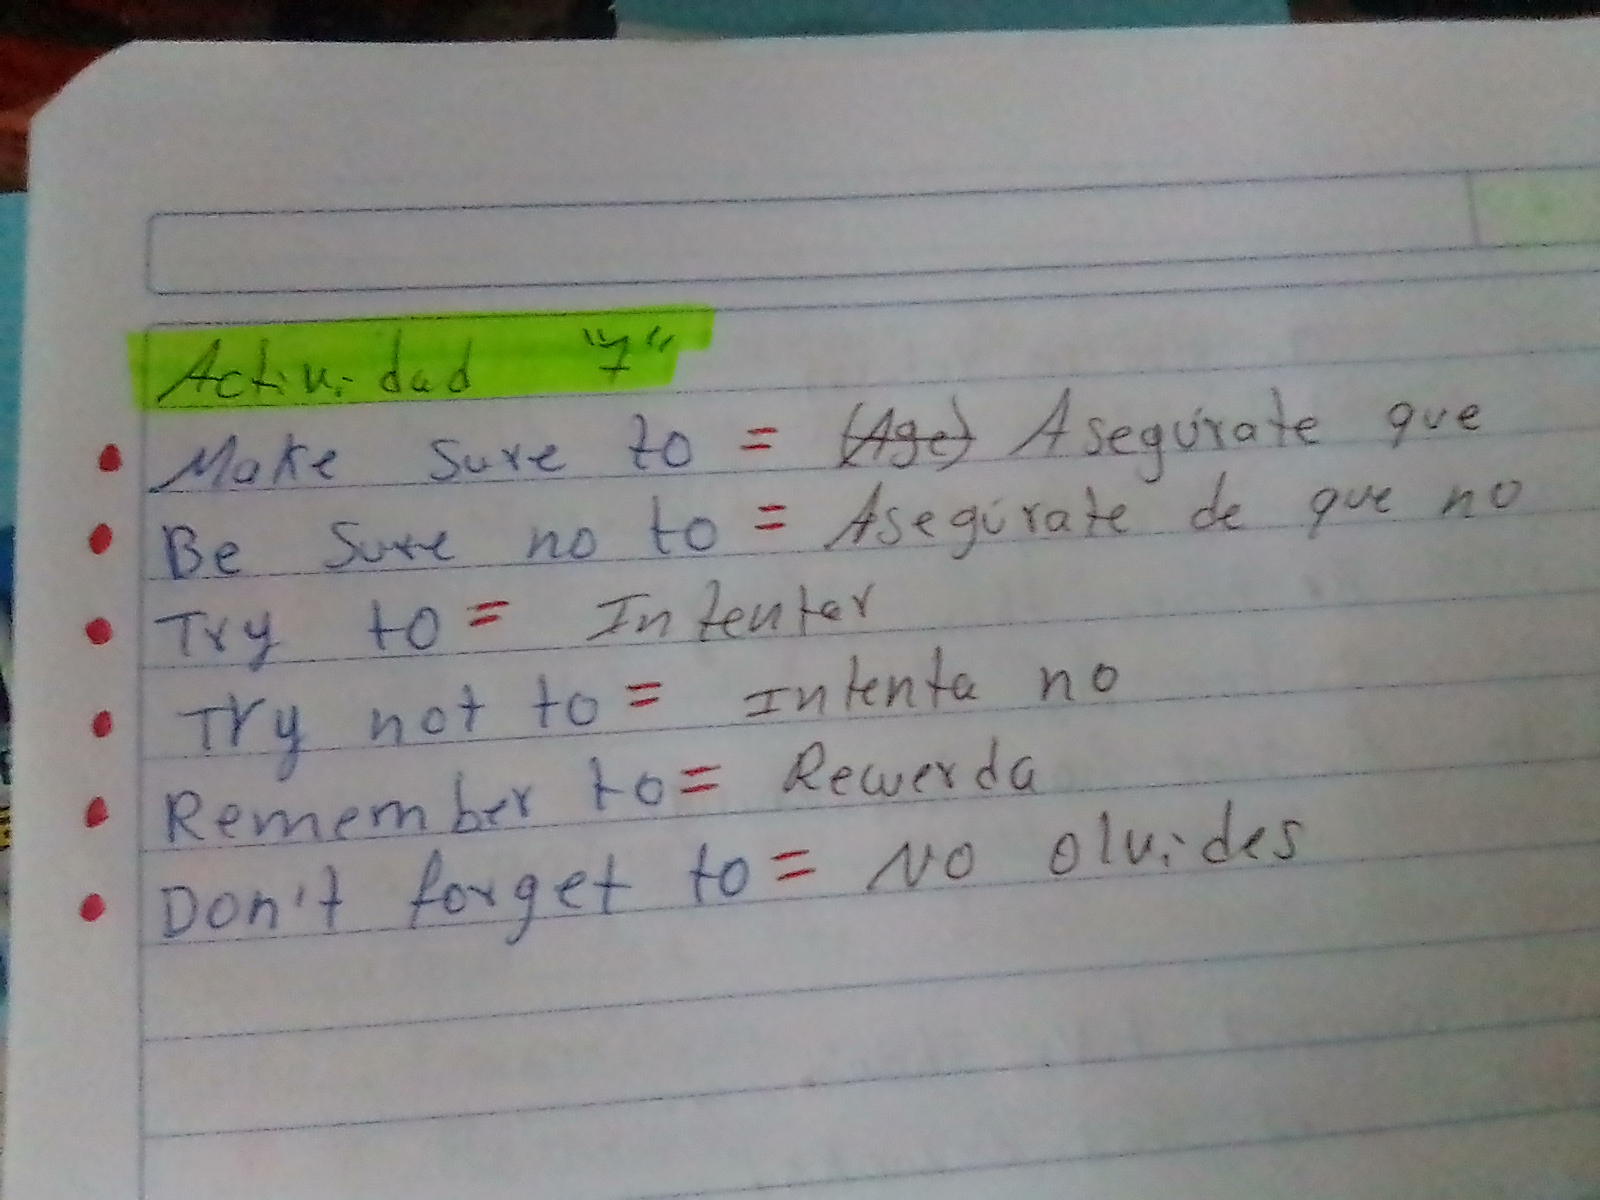 Actividad "7"
Make sure to = (Age) Asegúrate que
Be sure no to = Asegúrate de que no
Try to = Intenter
Try not to = Intenta no
Remember to = Recuerda
Don't forget to = No olvides